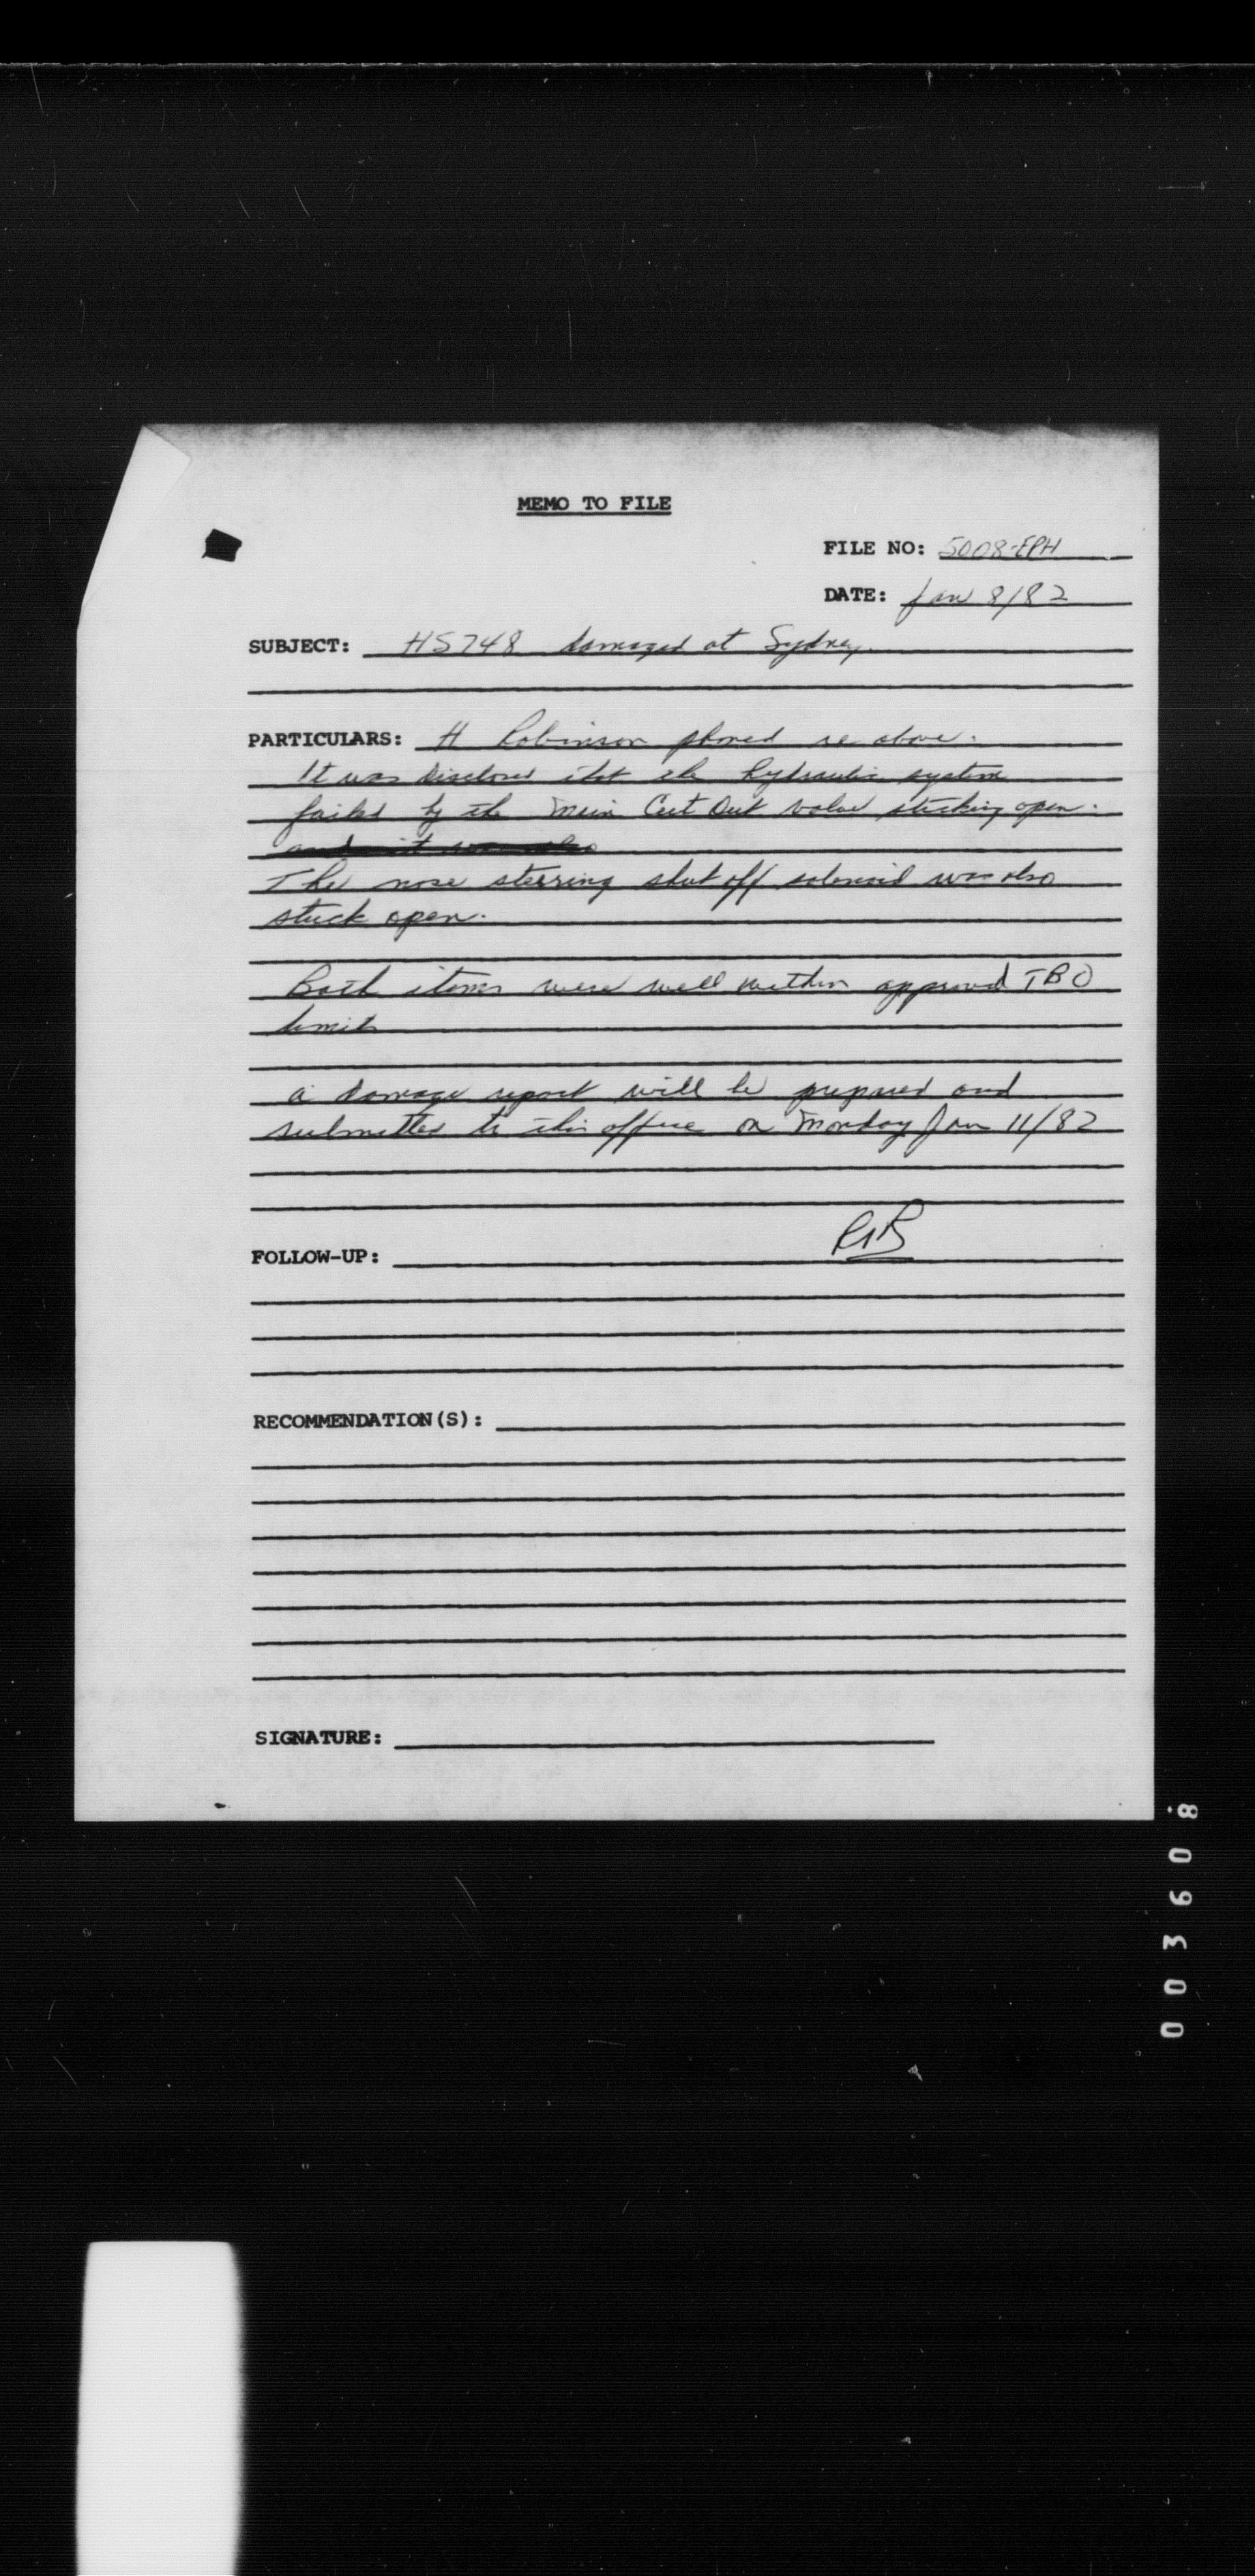 MEMO TO FILE
FILE NO: 5008-EPH
DATE: Jan 8/82
SUBJECT: HS748 damaged at Sydney.
PARTICULARS: H Robinson phoned re above.
It was disclosed that the hydraulic system
failed by the Main Cut Out valve sticking open.
and it was also
The nose steering shut off solenoid was also
stuck open.
Both items were well within approved TBO
limits
a damage report will be prepared and
submitted to this office on Monday Jan 11/82
FOLLOW-UP:
RECOMMENDATION(S):
SIGNATURE:
003608